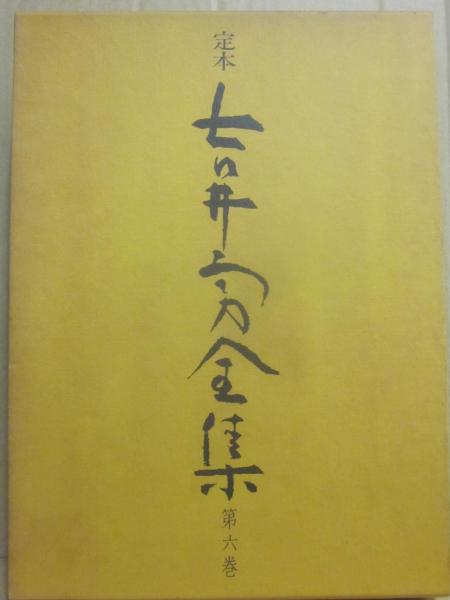 定本
吉井勇全集
第六巻